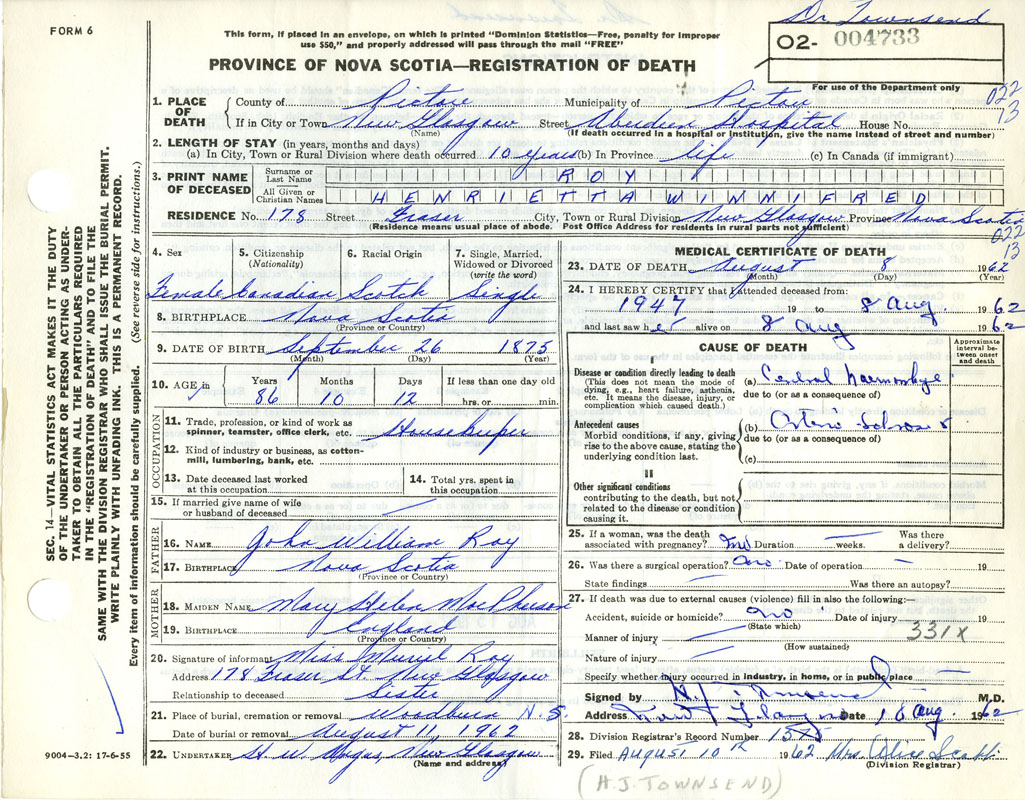 Dr Townsend
FORM 6
This form, if placed in an envelope, on which is printed "Dominion Statistics—Free, penalty for improper
use $50," and properly addressed will pass through the mail "FREE"
02- 004733
PROVINCE OF NOVA SCOTIA—REGISTRATION OF DEATH
For use of the Department only
022
13
1. PLACE OF DEATH
County of Pictou Municipality of Pictou
If in City or Town New Glasgow Street Aberdeen Hospital House No.
(Name) (If death occurred in a hospital or Institution, give the name Instead of street and number)
2. LENGTH OF STAY (in years, months and days)
(a) In City, Town or Rural Division where death occurred 10 years (b) In Province life (c) In Canada (if immigrant)
3. PRINT NAME OF DECEASED
Surname or Last Name ROY
All Given or Christian Names HENRIETTA WINNIFRED
RESIDENCE No. 178 Street Fraser City, Town or Rural Division New Glasgow Province Nova Scotia
(Residence means usual place of abode. Post Office Address for residents in rural parts not sufficient)
022
13
4. Sex Female
5. Citizenship (Nationality) Canadian
6. Racial Origin Scotch
7. Single, Married, Widowed or Divorced (write the word) Single
8. BIRTHPLACE Nova Scotia
(Province or Country)
9. DATE OF BIRTH September 26 1875
(Month) (Day) (Year)
10. AGE in Years 86 Months 10 Days 12 If less than one day old hrs. or min.
OCCUPATION
11. Trade, profession, or kind of work as
spinner, teamster, office clerk, etc. Housekeeper
12. Kind of industry or business, as cotton-
mill, lumbering, bank, etc.
13. Date deceased last worked
at this occupation
14. Total yrs. spent in
this occupation
15. If married give name of wife
or husband of deceased
FATHER
16. NAME John William Roy
17. BIRTHPLACE Nova Scotia
(Province or Country)
MOTHER
18. MAIDEN NAME Mary Helen MacPherson
19. BIRTHPLACE England
(Province or Country)
20. Signature of informant Miss Muriel Roy
Address 178 Fraser St. New Glasgow
Relationship to deceased Sister
21. Place of burial, cremation or removal Woodburn N.S.
Date of burial or removal August 11, 1962
22. UNDERTAKER H. W. Angus, New Glasgow
(Name and address)
MEDICAL CERTIFICATE OF DEATH
23. DATE OF DEATH August 8 1962
(Month) (Day) (Year)
24. I HEREBY CERTIFY that I attended deceased from:
1947 19 to 8 Aug. 1962
and last saw her alive on 8 Aug 1962
CAUSE OF DEATH
Approximate interval between onset and death
I
Disease or condition directly leading to death
(This does not mean the mode of
dying, e.g., heart failure, asthenia,
etc. It means the disease, injury, or
complication which caused death.)
(a)
due to (or as a consequence of)
Antecedent causes
Morbid conditions, if any, giving
rise to the above cause, stating the
underlying condition last.
(b)
due to (or as a consequence of)
(c)
II
Other significant conditions
contributing to the death, but not
related to the disease or condition
causing it.
25. If a woman, was the death
associated with pregnancy? Duration weeks. Was there a delivery?
26. Was there a surgical operation? no Date of operation 19
State findings Was there an autopsy?
27. If death was due to external causes (violence) fill in also the following:—
Accident, suicide or homicide? no Date of injury 19
(State which)
331X
Manner of injury
(How sustained)
Nature of injury
Specify whether injury occurred in industry, in home, or in public place
Signed by H. J. Townsend M.D.
Address New Glasgow Date 10 Aug. 1962
28. Division Registrar's Record Number
29. Filed AUGUST 10th 1962 Mrs. Alice
(Division Registrar)
(H.J. TOWNSEND)
SEC. 14—VITAL STATISTICS ACT MAKES IT THE DUTY
OF THE UNDERTAKER OR PERSON ACTING AS UNDER-
TAKER TO OBTAIN ALL THE PARTICULARS REQUIRED
IN THE "REGISTRATION OF DEATH" AND TO FILE THE
SAME WITH THE DIVISION REGISTRAR WHO SHALL ISSUE THE BURIAL PERMIT.
WRITE PLAINLY WITH UNFADING INK. THIS IS A PERMANENT RECORD.
Every item of information should be carefully supplied. (See reverse side for instructions.)
9004—3.2: 17-6-55